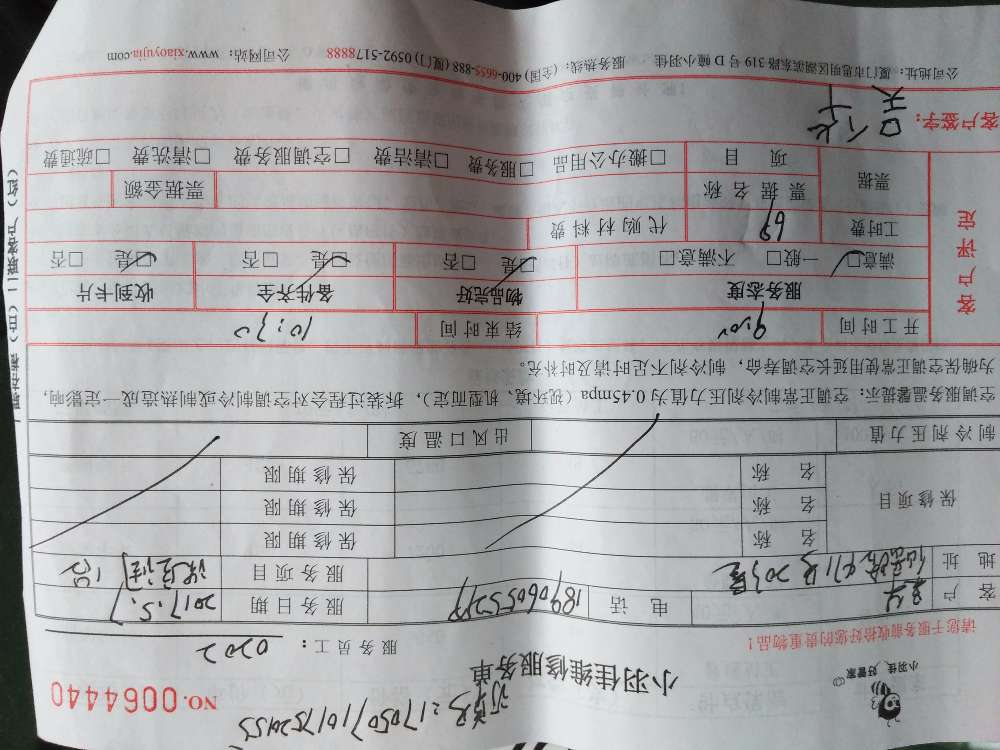 订单号:17050710175204155
小羽佳 好管家
小羽佳维修服务单
NO.0064440
请您于服务前收拾好您的贵重物品！
服务员工：0202
客户 电话 18906055277 服务日期 2017.5.7
地址 203室 服务项目
保修项目 名称 保修期限
名称 保修期限
名称 保修期限
制冷剂压力值 出风口温度
空调服务温馨提示：空调正常制冷剂压力值为0.45mpa（视环境、机型而定），拆装过程会对空调制冷或制热造成一定影响，
为确保空调正常使用延长空调寿命，制冷剂不足时请及时补充。
客户评定
开工时间 9:00 结束时间 10:30
服务态度 物品完好 备件齐全 收到卡片
满意□ 一般□ 不满意□ □是 □否 □是 □否 □是 □否
工时费 69 代购材料费
票据 票据名称 票据金额
项目 □搬办公用品 □服务费 □清洁费 □空调服务费 □清洗费 □疏通费
客户签字：
公司地址：厦门市思明区湖滨东路319号D幢小羽佳 服务热线：(全国) 400-6655-888 (厦门) 0592-5178888 公司网站：www.xiaoyujia.com
一联存根（白）二联客户（红）